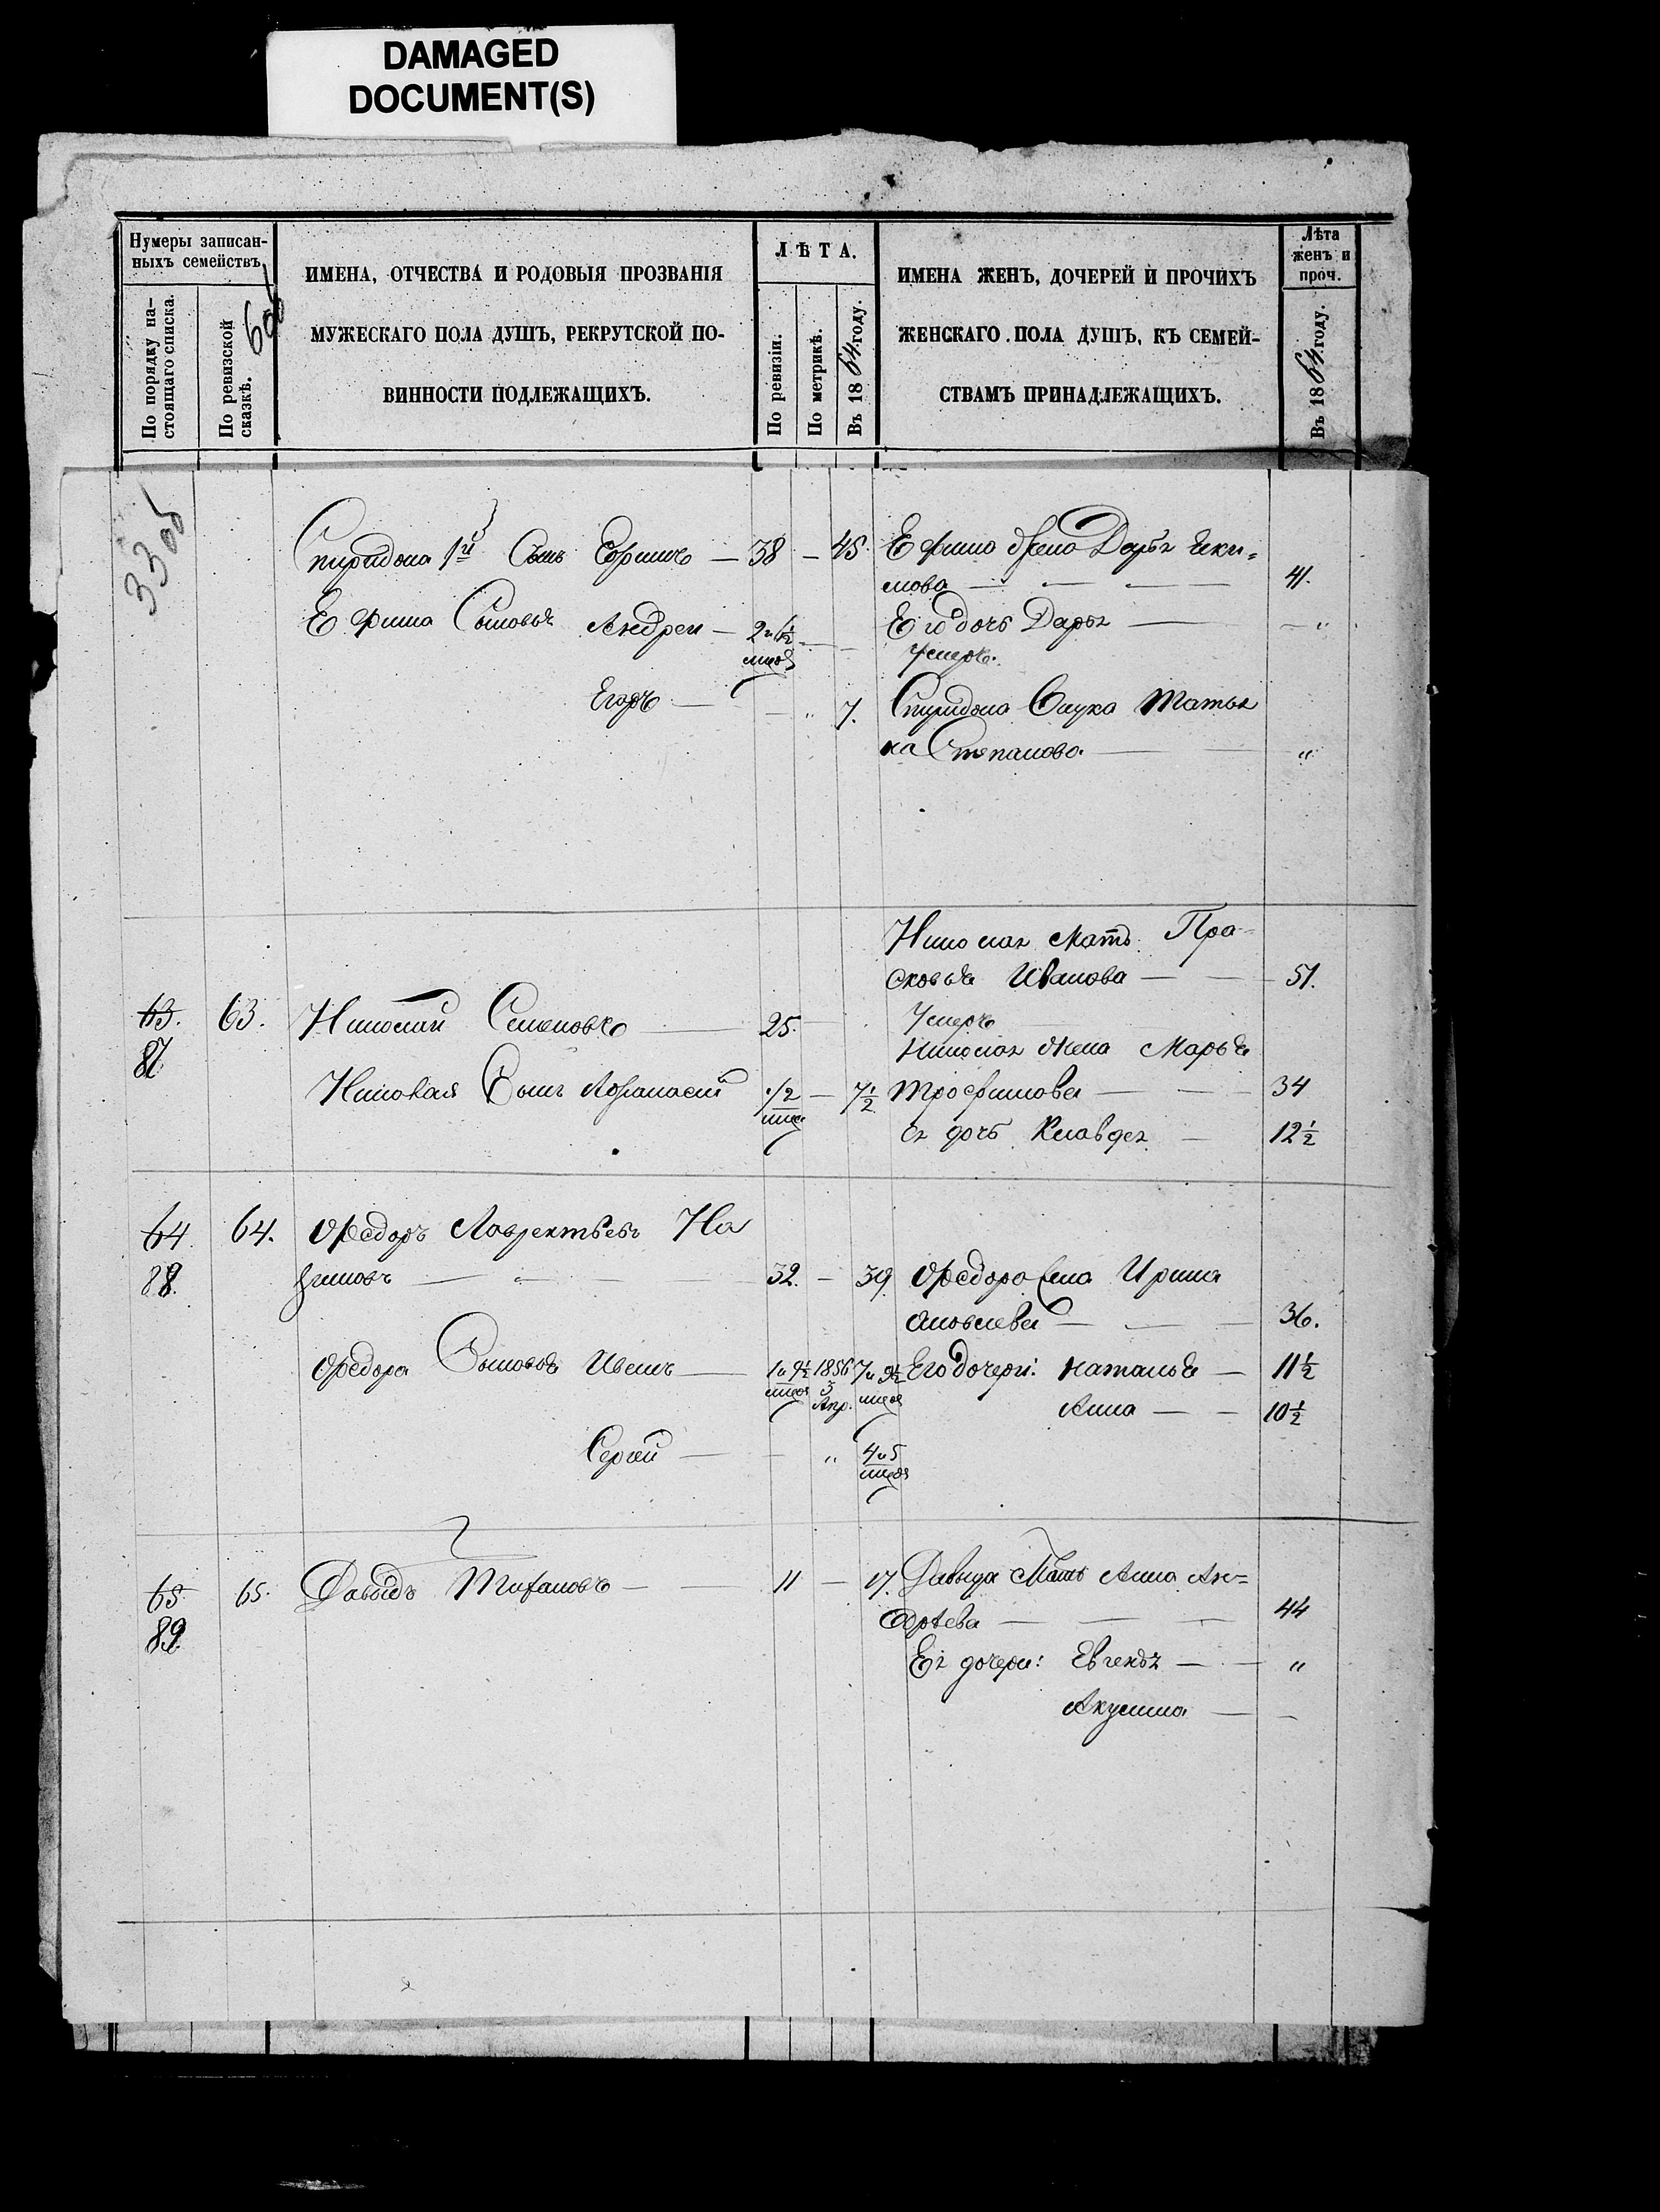 DAMAGED
DOCUMENT(S)
Нумеры записан-
ныхъ семействъ.
По порядку на-
стоящаго списка.
По ревизской
сказкѣ.
ИМЕНА, ОТЧЕСТВА И РОДОВЫЯ ПРОЗВАНІЯ
МУЖЕСКАГО ПОЛА ДУШЪ, РЕКРУТСКОЙ ПО-
ВИННОСТИ ПОДЛЕЖАЩИХЪ.
ЛѢТА.
По ревизіи.
По метрикѣ.
Въ 1864 году.
ИМЕНА ЖЕНЪ, ДОЧЕРЕЙ И ПРОЧИХЪ
ЖЕНСКАГО ПОЛА ДУШЪ, КЪ СЕМЕЙ-
СТВАМЪ ПРИНАДЛЕЖАЩИХЪ.
Лѣта
женъ и
проч.
Въ 1864 году.
33 об
Спиридона 1й Сынъ Ефимъ — 38 — 45. Ефима жена Дарья Еки=
мова — 41.
Ефима Сыновья Андрей — 2 и 6½ Его дочь Дарья — "
мцов Умеръ.
Егоръ — " 7. Спиридона Снуха Татья
на Степанова — "
Николая Мать Пра-
сковья Иванова — 51.
63. 63. Николай Семеновъ — 25. Умеръ
87 Николая жена Марья
Николая Сынъ Афанасий ½ — 7½ Трофимова — 34
мца
Ея дочь Клавдея — 12½
64. 64. Федоръ Лаврентьевъ На
88. зимовъ — 32. — 39. Федора жена Ирина
Яковлева — 36.
Федора Сыновья Иванъ — 1 и 9½ 1856 7 и 9½ Его дочери: Наталья — 11½
мцов 3 Апр. мцов Анна — 10½
Сергей — " 4 и 5
мцов
65 65. Давыдъ Тифановъ — 11 — 17. Давыда Мать Анна Ан=
89. дрѣева — 44
Ея дочери: Евгенья — "
Акулина —